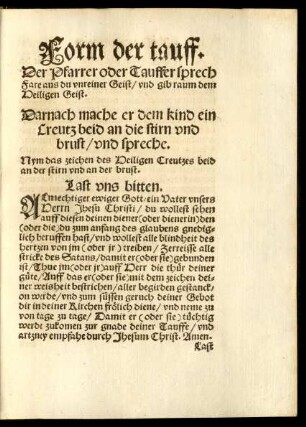 Form der tauff.
Der Pfarrer oder Tauffer sprech
Fare aus du vnreiner Geist/ vnd gib raum dem
Heiligen Geist.
Darnach mache er dem kind ein
Creutz beid an die stirn vnd
brust/ vnd spreche.
Nym das zeichen des Heiligen Creutzes beid
an der stirn vnd an der brust.
Last vns bitten.
Almechtiger ewiger Gott/ ein Vater vnsers
Herrn Jhesu Christi/ du wollest sehen
auff diesen deinen diener (oder dienerin) den
(oder die) du zum anfang des glaubens gnedig-
lich beruffen hast/ vnd wollest alle blindheit des
hertzen von jm (oder jr) treiben/ Zerreisse alle
stricke des Satans/ damit er (oder sie) gebunden
ist/ Thue jm (oder jr) auff Herr die thür deiner
güte/ Auff das er (oder sie) mit dem zeichen dei-
ner weisheit bestrichen/ aller begirden gestanck/
on wirde/ vnd zum süssen geruch deiner Gebot
dir in deiner Kirchen frölich diene/ vnd neme zu
von tage zu tage/ Damit er (oder sie) tüchtig
werde zukomen zur gnade deiner Tauffe/ vnd
artzney empfahe durch Jhesum Christ. Amen.
Last